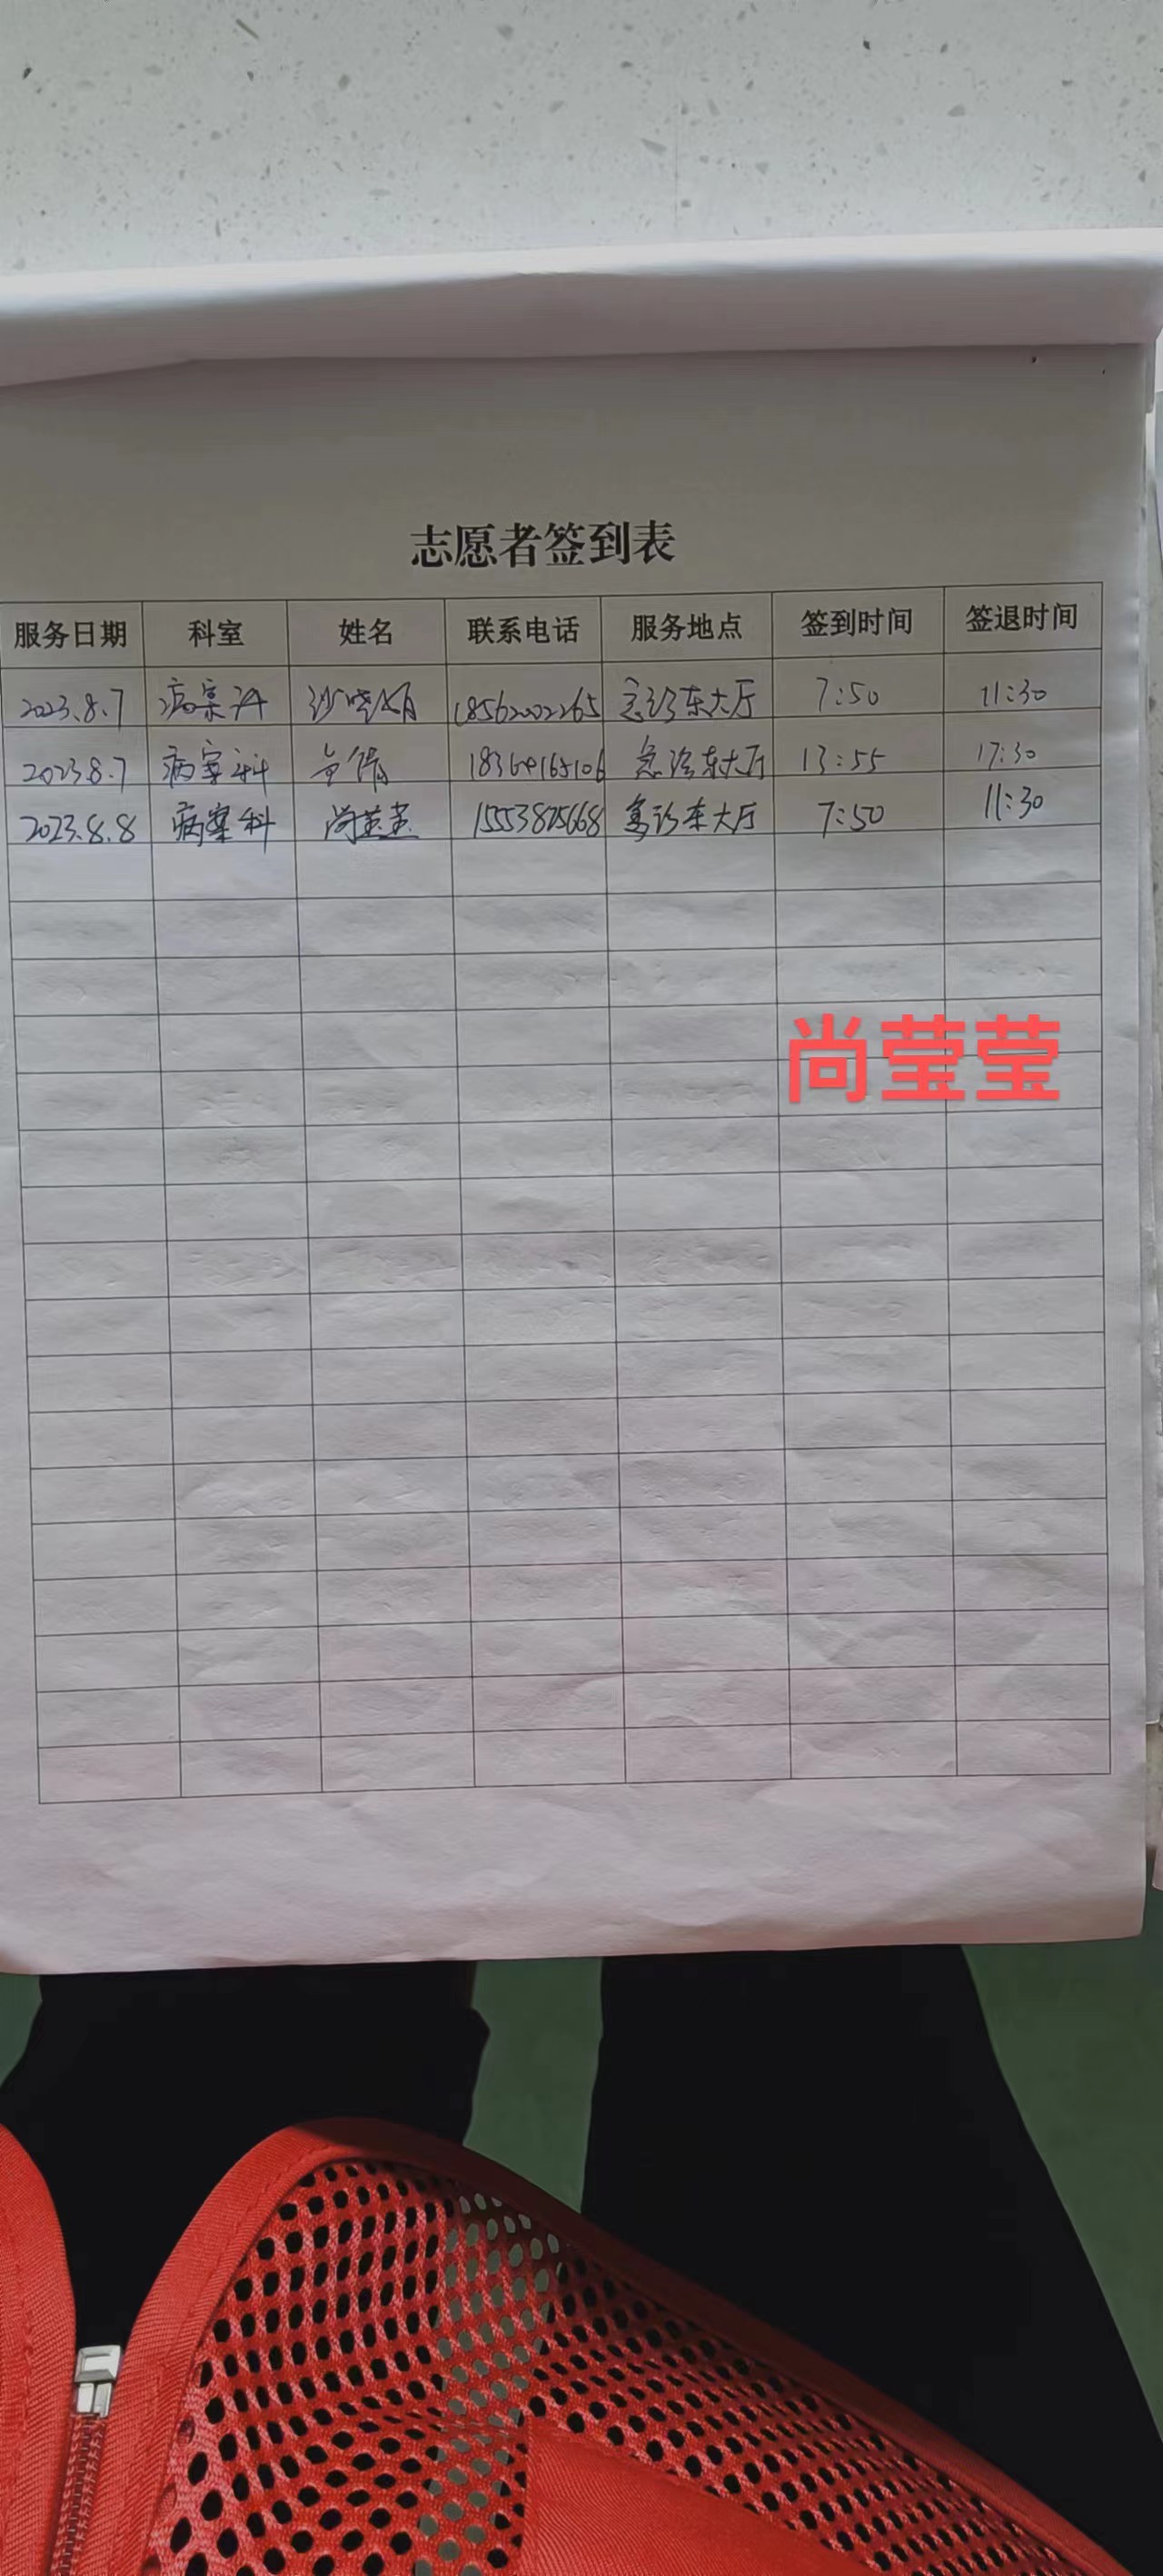 志愿者签到表
服务日期 科室 姓名 联系电话 服务地点 签到时间 签退时间
2023.8.7 病案科 18562002265 急诊东大厅 7:50 11:30
2023.8.7 病案科 倩 18364165106 急诊东大厅 13:55 17:30
2023.8.8 病案科 尚莹莹 15553825668 急诊东大厅 7:50 11:30
尚莹莹